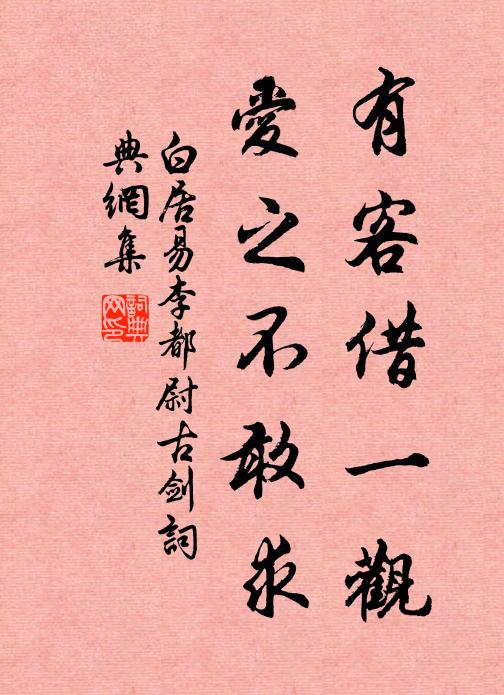 有客借一觀
愛之不敢求
白居易李都尉古劍詞
典網集
詞典網印